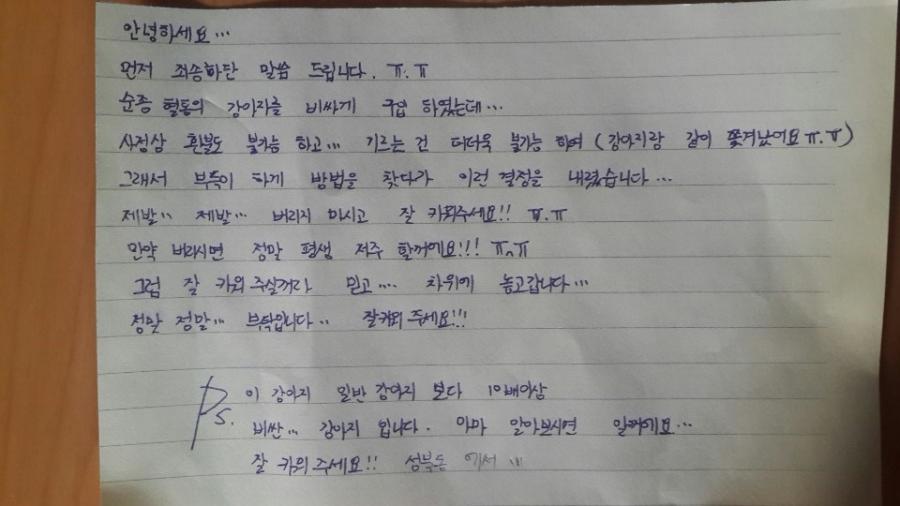 안녕하세요...
먼저 죄송하단 말씀 드립니다. ㅠ.ㅠ
순종 혈통의 강아지를 비싸게 구입 하였는데...
사정상 환불도 불가능 하고... 기르는 건 더더욱 불가능 하여 (강아지랑 같이 쫓겨났어요 ㅠ.ㅠ)
그래서 부득이 하게 방법을 찾다가 이런 결정을 내렸습니다...
제발.. 제발... 버리지 마시고 잘 키워주세요!! ㅠ.ㅠ
만약 버리시면 정말 평생 저주 할꺼에요!!! ㅠ.ㅠ
그럼 잘 키워 주실꺼라 믿고.... 차위에 놓고갑니다...
정말 정말... 부탁입니다.. 잘키워 주세요!!!
Ps. 이 강아지 일반 강아지 보다 10배이상
비싼... 강아지 입니다. 아마 알아보시면 알꺼에요...
잘 키워 주세요!! 성북동 에서 ...